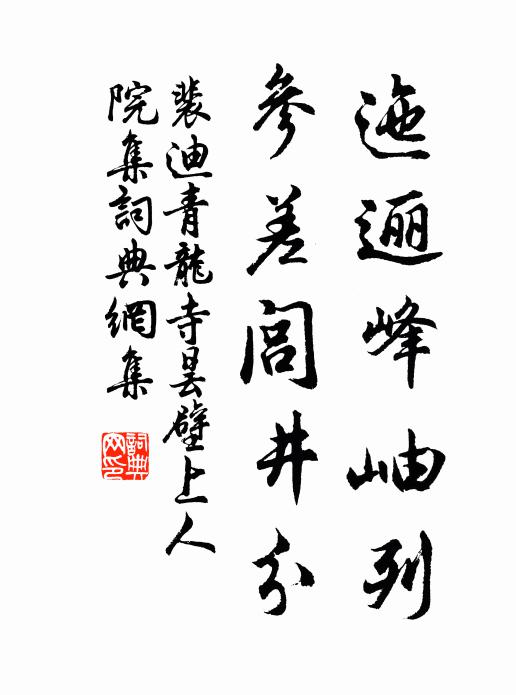 迤邐峰岫列
參差閭井分
裴迪青龍寺曇壁上人
院集詞典網集
詞典網印